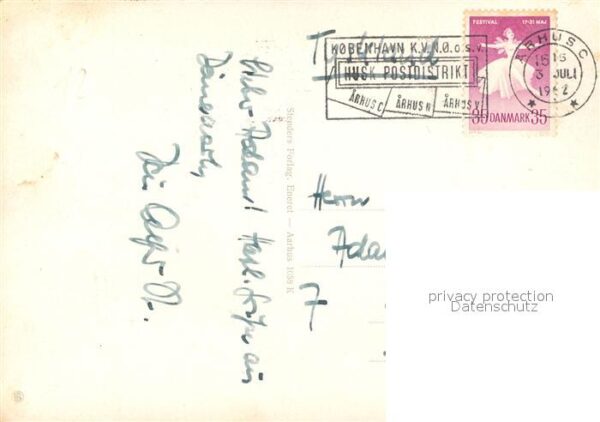 Tyskland
KØBENHAVN K.V.N.Ø.o.s.v.
HUSK POSTDISTRIKT
ÅRHUS C ÅRHUS N ÅRHUS V
FESTIVAL 17-31 MAJ
35 DANMARK 35
ÅRHUS C
3 JULI
1962
Stenders Forlag, Eneret — Aarhus 1058 K
Herrn
Adam
7
Lieber Adam! Herzl. Grüße aus
Dänemark,
privacy protection
Datenschutz